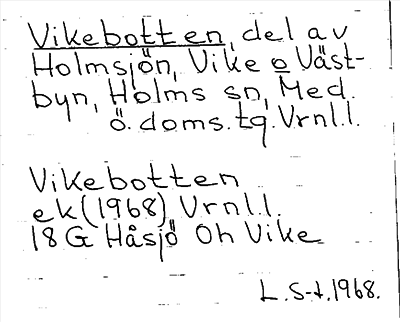 Vikebotten, del av
Holmsjön, Vike o Väst-
byn, Holms sn, Med.
ö. doms. tg. Vrnl.l.
Vikebotten
ek (1968) Vrnl.l.
18 G Håsjö Oh Vike
L. S-t. 1968.